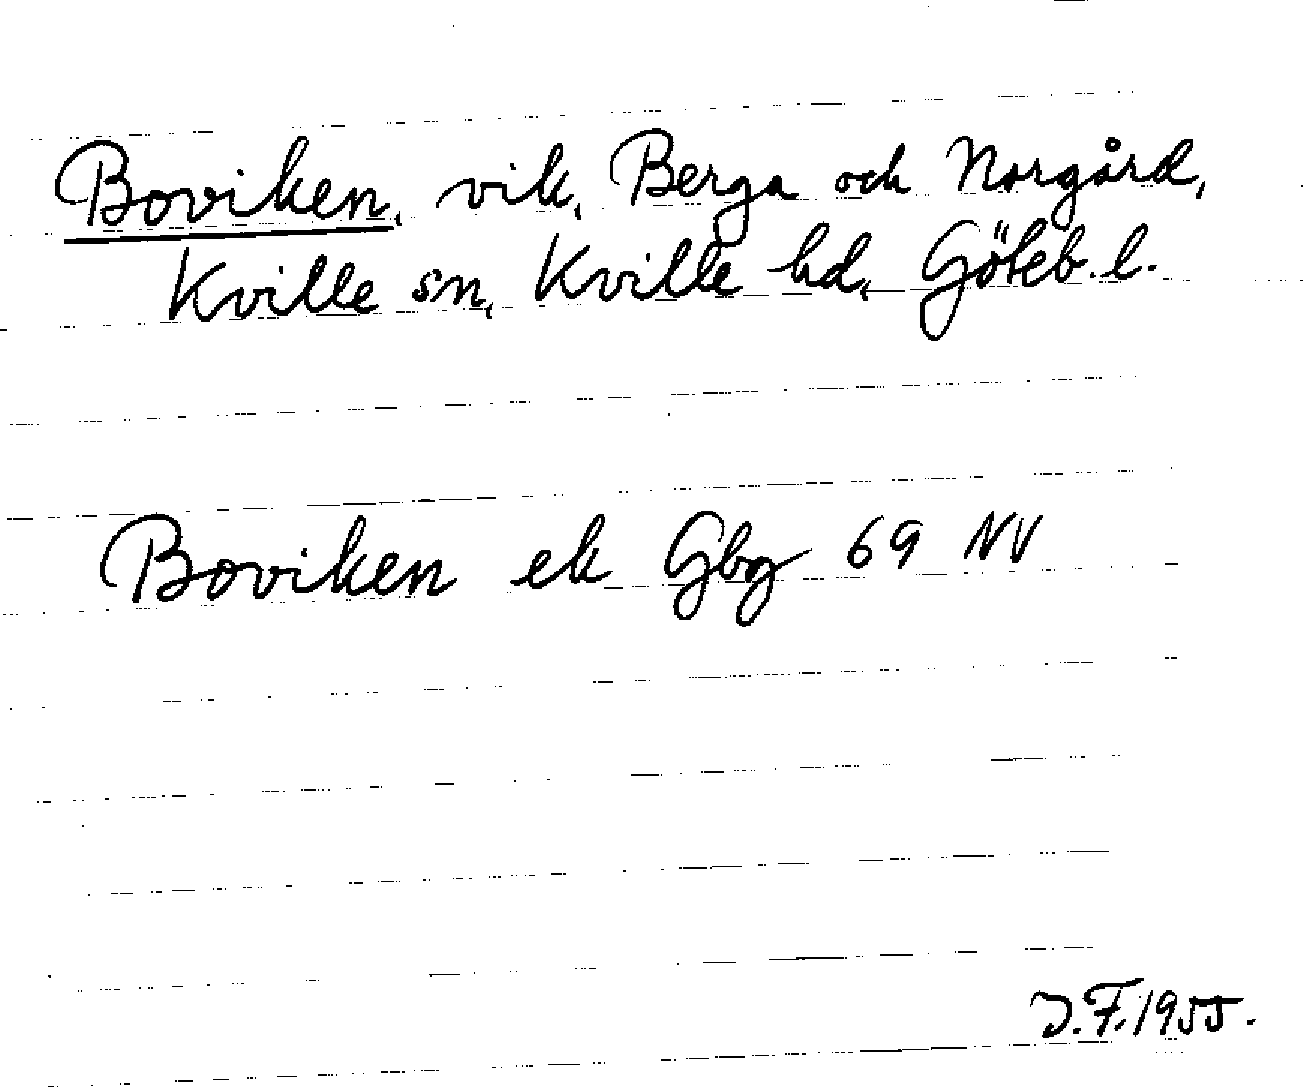 Boviken, vik, Berga och Norgård,
Kville sn, Kville hd, Göteb. l.
Boviken ek Gbg 69 NV
J.F. 1955.